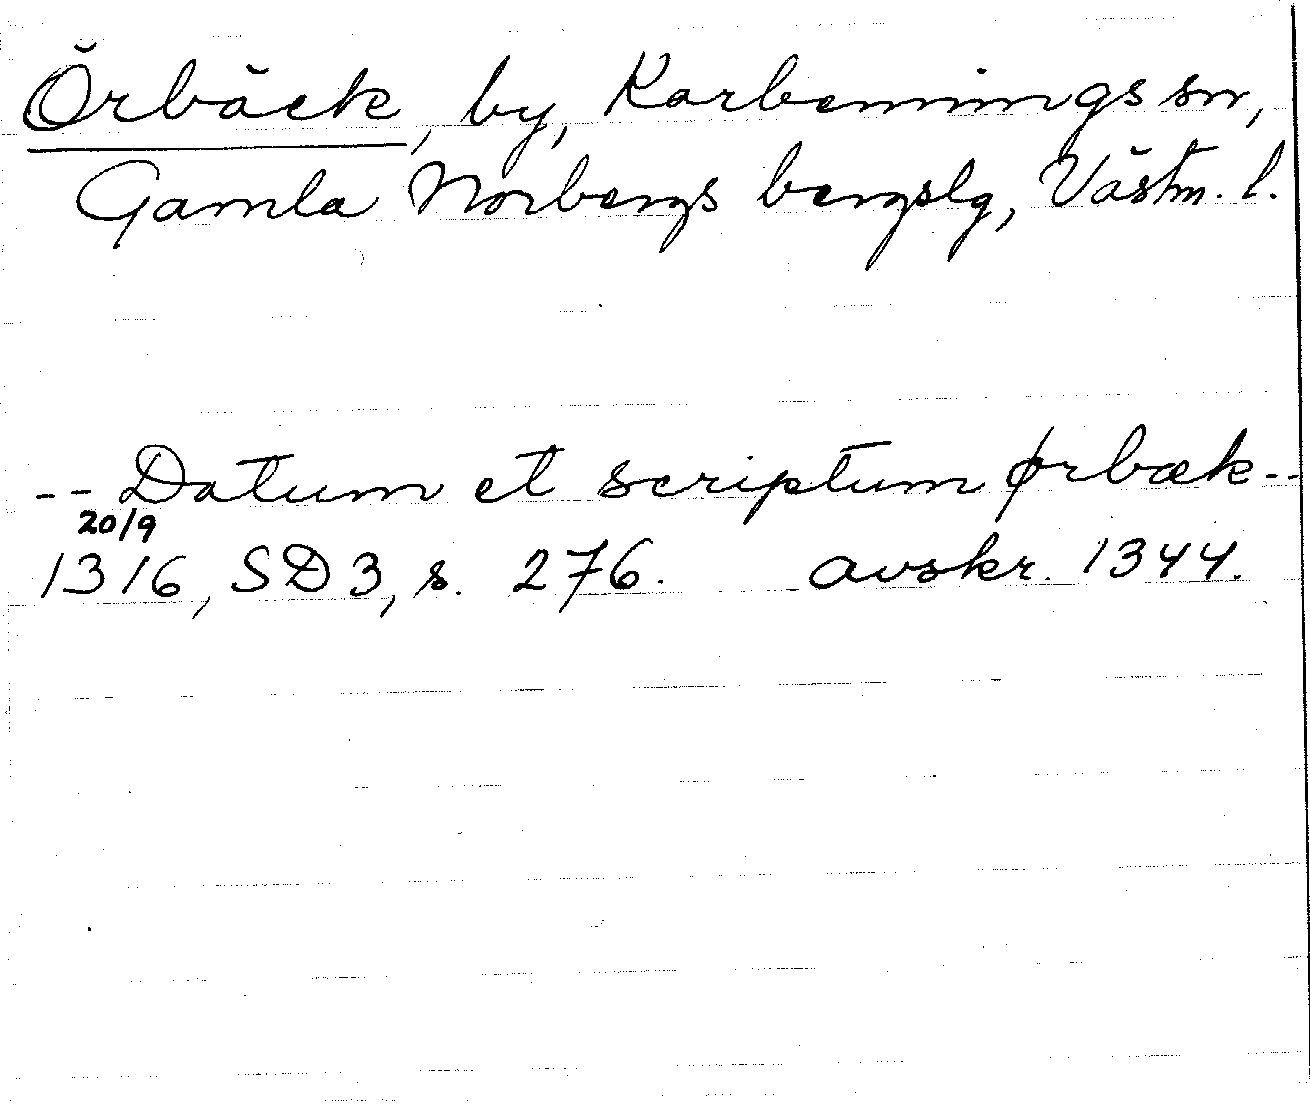 Örbäck, by, Karbennings sn,
Gamla Norbergs bergslg, Västm. l.
-- Datum et scriptum ørbæk --
20/9
1316, SD 3, s. 276. avskr. 1344.